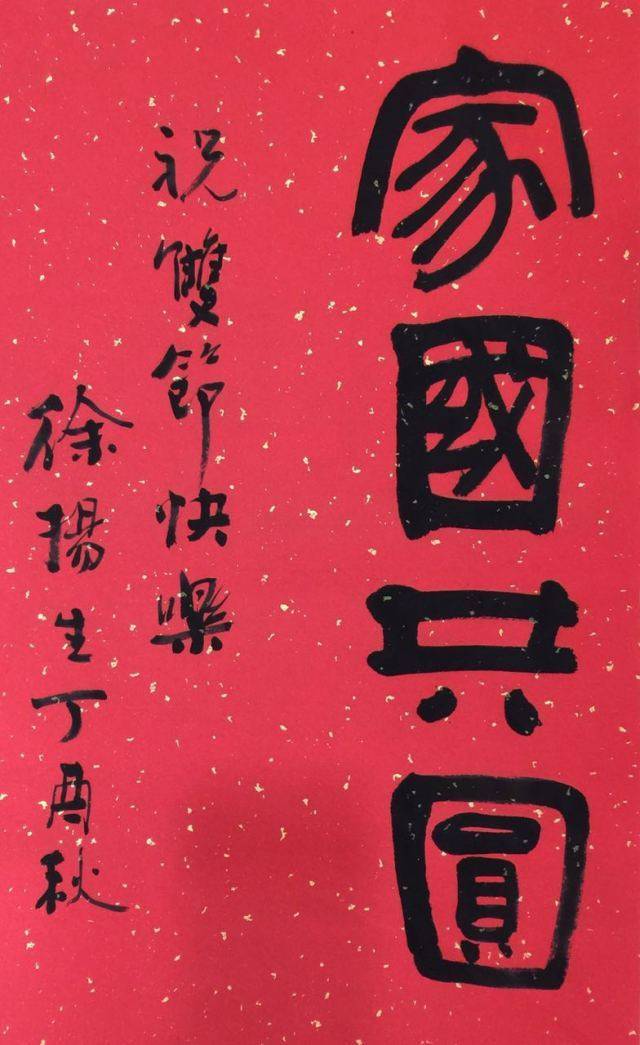 家國共圓
祝雙節快樂
徐揚生丁酉秋